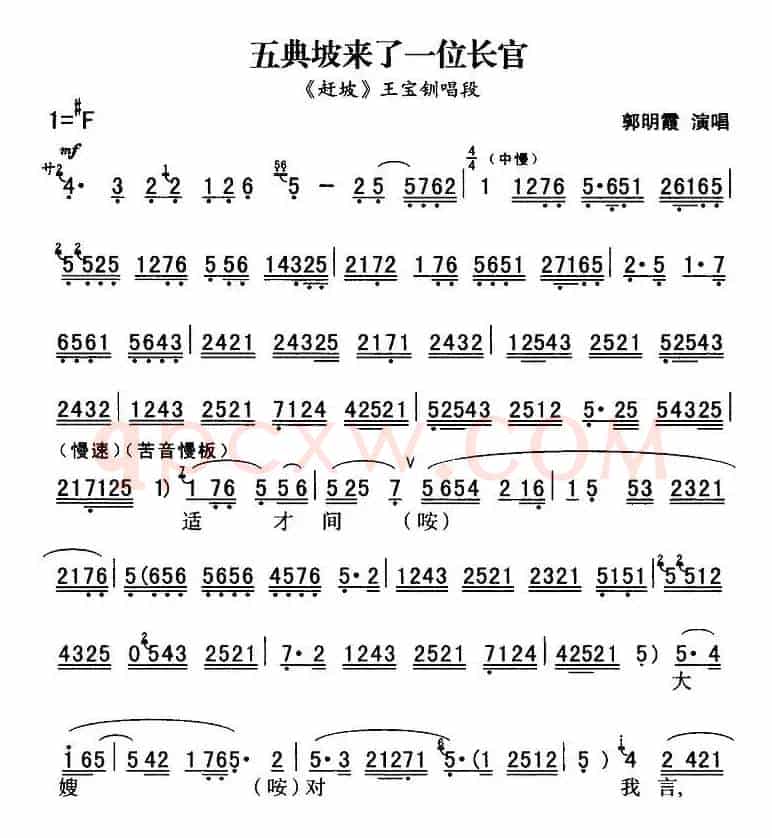 五典坡来了一位长官
《赶坡》王宝钏唱段
1=#F 郭明霞 演唱
mf 4/4 (中慢)
廾 2 4· 3 2 1 2 2 1 2 6 56 5 – 2 5 5762 | 1 1276 5·651 26165 |
2 5 2 525 1276 5 56 14325 | 2172 1 76 5651 27165 | 2·5 1·7
6561 5643 | 2421 24325 2171 2432 | 12543 2521 52543
2432 | 1243 2521 7124 42521 | 52543 2512 5·25 54325 |
(慢速)(苦音慢板)
217125 1) 2 1 76 5 5 6 | 5 25 7 ∨ 5 654 2 16 | 15 5 53 2321
适 才 间 (唵)
2176 | 5(656 5656 4576 5·2 | 1243 2521 2321 5151 | 2 5 2 5512
4325 0 2 543 2521 | 7·2 1243 2521 7124 | 42521 5) 5·4
大
i 65 5 42 1 765· 2 | 5·3 21271 6 5·(1 2512 | 5) i 4 2 421
嫂 (唵)对 我 言,
qpcxw.COM